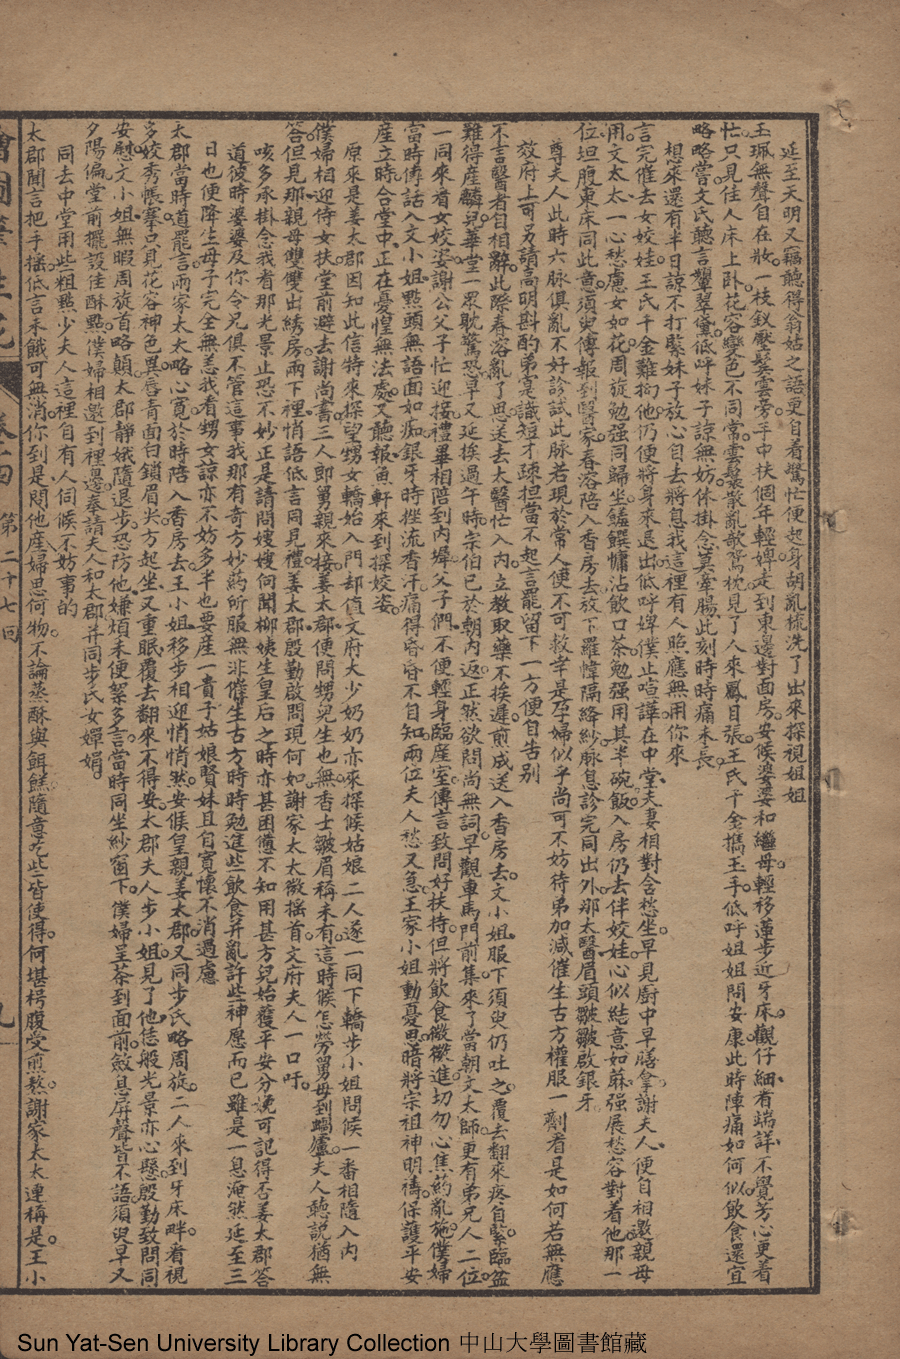 延至天明又竊聽得翁姑之語更自着驚忙便起身胡亂梳洗了出來探視姐姐
玉珮無聲自在妝一枝釵壓鬢雲旁手中扶個年輕婢走到東邊對面房安候婆婆和繼母輕移蓮步近牙床觀仔細看端詳不覺芳心更着
忙只見佳人床上臥花容變色不同常雲鬟散亂欹鴛枕見了人來鳳目張王氏千金擕玉手低呼姐姐問安康此時陣痛如何似飲食還宜
略略嘗文氏聽言顰翠黛低呼妹子諒無妨休掛念莫牽腸此刻時時痛未長
想來還有半日諒不打緊妹子放心自去將息我這裡有人照應無用你來
言完催去女姣娃王氏千金難拗他仍便將身來退出低呼婢僕止喧譁在中堂夫妻相對含愁坐早見廚中早膳拿謝夫人便自相邀親母
用文太太一心愁慮女如花周旋勉强同歸坐饚饌慵沾飲口茶勉强用其半碗飯入房仍去伴姣娃心似結意如蔴强展愁容對着他那一
位坦腹東床同此意須臾傳報到醫家春溶陪入香房去放下羅幃隔絳紗脉息診完同出外那太醫眉頭皺皺啟銀牙
尊夫人此時六脉俱亂不好診試此脉若現於常人便不可救幸是孕婦似乎尚可不妨待弟加減催生古方權服一劑看是如何若無應
效府上可另請高明斟酌弟寔識短才疎担當不起言罷留下一方便自告別
不言醫者自相辭此際春溶亂了思送去太醫忙入內立教取藥不挨遲煎成送入香房去文小姐服下須臾仍吐之覆去翻來疼自緊臨盆
難得産麟兒華堂一眾耽驚恐早又延挨過午時宗伯已於朝內返正然欲問尚無詞早觀車馬門前集來了當朝文太師更有弟兄人二位
一同來看女姣姿謝公父子忙迎接禮畢相陪到內墀父子們不便輕身臨産室傳言致問好扶持但將飲食微微進切勿心焦葯亂施僕婦
當時傳話入文小姐點頭無語面如痴銀牙時挫流香汗痛得昏昏不自知兩位夫人愁又急王家小姐動憂思暗將宗祖神明禱保護平安
産立時合堂中正在憂惶無法處又聽報魚軒來到探姣姿
原來是姜太郡因知此信特來探望甥女轎始入門却值文府大少奶奶亦來探候姑娘二人遂一同下轎步小姐問候一番相隨入內
僕婦相迎侍女扶堂前避去謝尚書三人即舅親來接姜太郡便問甥兒生也無香士皺眉稱未有這時候怎勞舅母到蝸廬夫人聽說猶無
答但見那親母雙雙出綉房兩下裡悄語低言同見禮姜太郡殷勤啟問現何如謝家太太微搖首文府夫人一口吁
咳多承掛念我看那光景止恐不妙正是請問嫂嫂何聞柳姨生皇后之時亦甚困憊不知用甚方兒始獲平安分娩可記得否姜太郡答
道彼時婆婆及你令兄俱不管這事我那有奇方妙葯所服無非催生古方時時勉進些飲食并亂許些神愿而已雖是一息淹然延至三
日也便降生母子完全無恙我看甥女諒亦不妨多半也要産一貴子姑娘賢妹且自寬懷不消過慮
太郡當時道罷言兩家太太略心寛於時陪入香房去王小姐移步相迎悄悄然安候皇親姜太郡又同步氏略周旋二人來到牙床畔看視
多姣秀帳搴只見花容神色異唇青面白鎖眉尖方起坐又重眠覆去翻來不得安太郡夫人步小姐見了他恁般光景亦心懸殷勤致問同
安慰文小姐無暇周旋首略顛太郡靜娥隨退步恐防他嫌煩未便絮多言當時同坐紗窗下僕婦呈茶到面前斂息屏聲皆不語須臾早又
夕陽偏堂前擺設佳酥點僕婦相邀到裡邊奉請夫人和太郡并同步氏女嬋娟
同去中堂用些粗點少夫人這裡自有人伺候不妨事的
太郡聞言把手搖低言未餓可無消你到是問他産婦思何物不論蒸酥與餌餻隨意吃些皆使得何堪枵腹受煎熬謝家太太連稱是王小
繪圖筆生花
卷十四
第二十七回
九
Sun Yat-Sen University Library Collection 中山大學圖書館藏